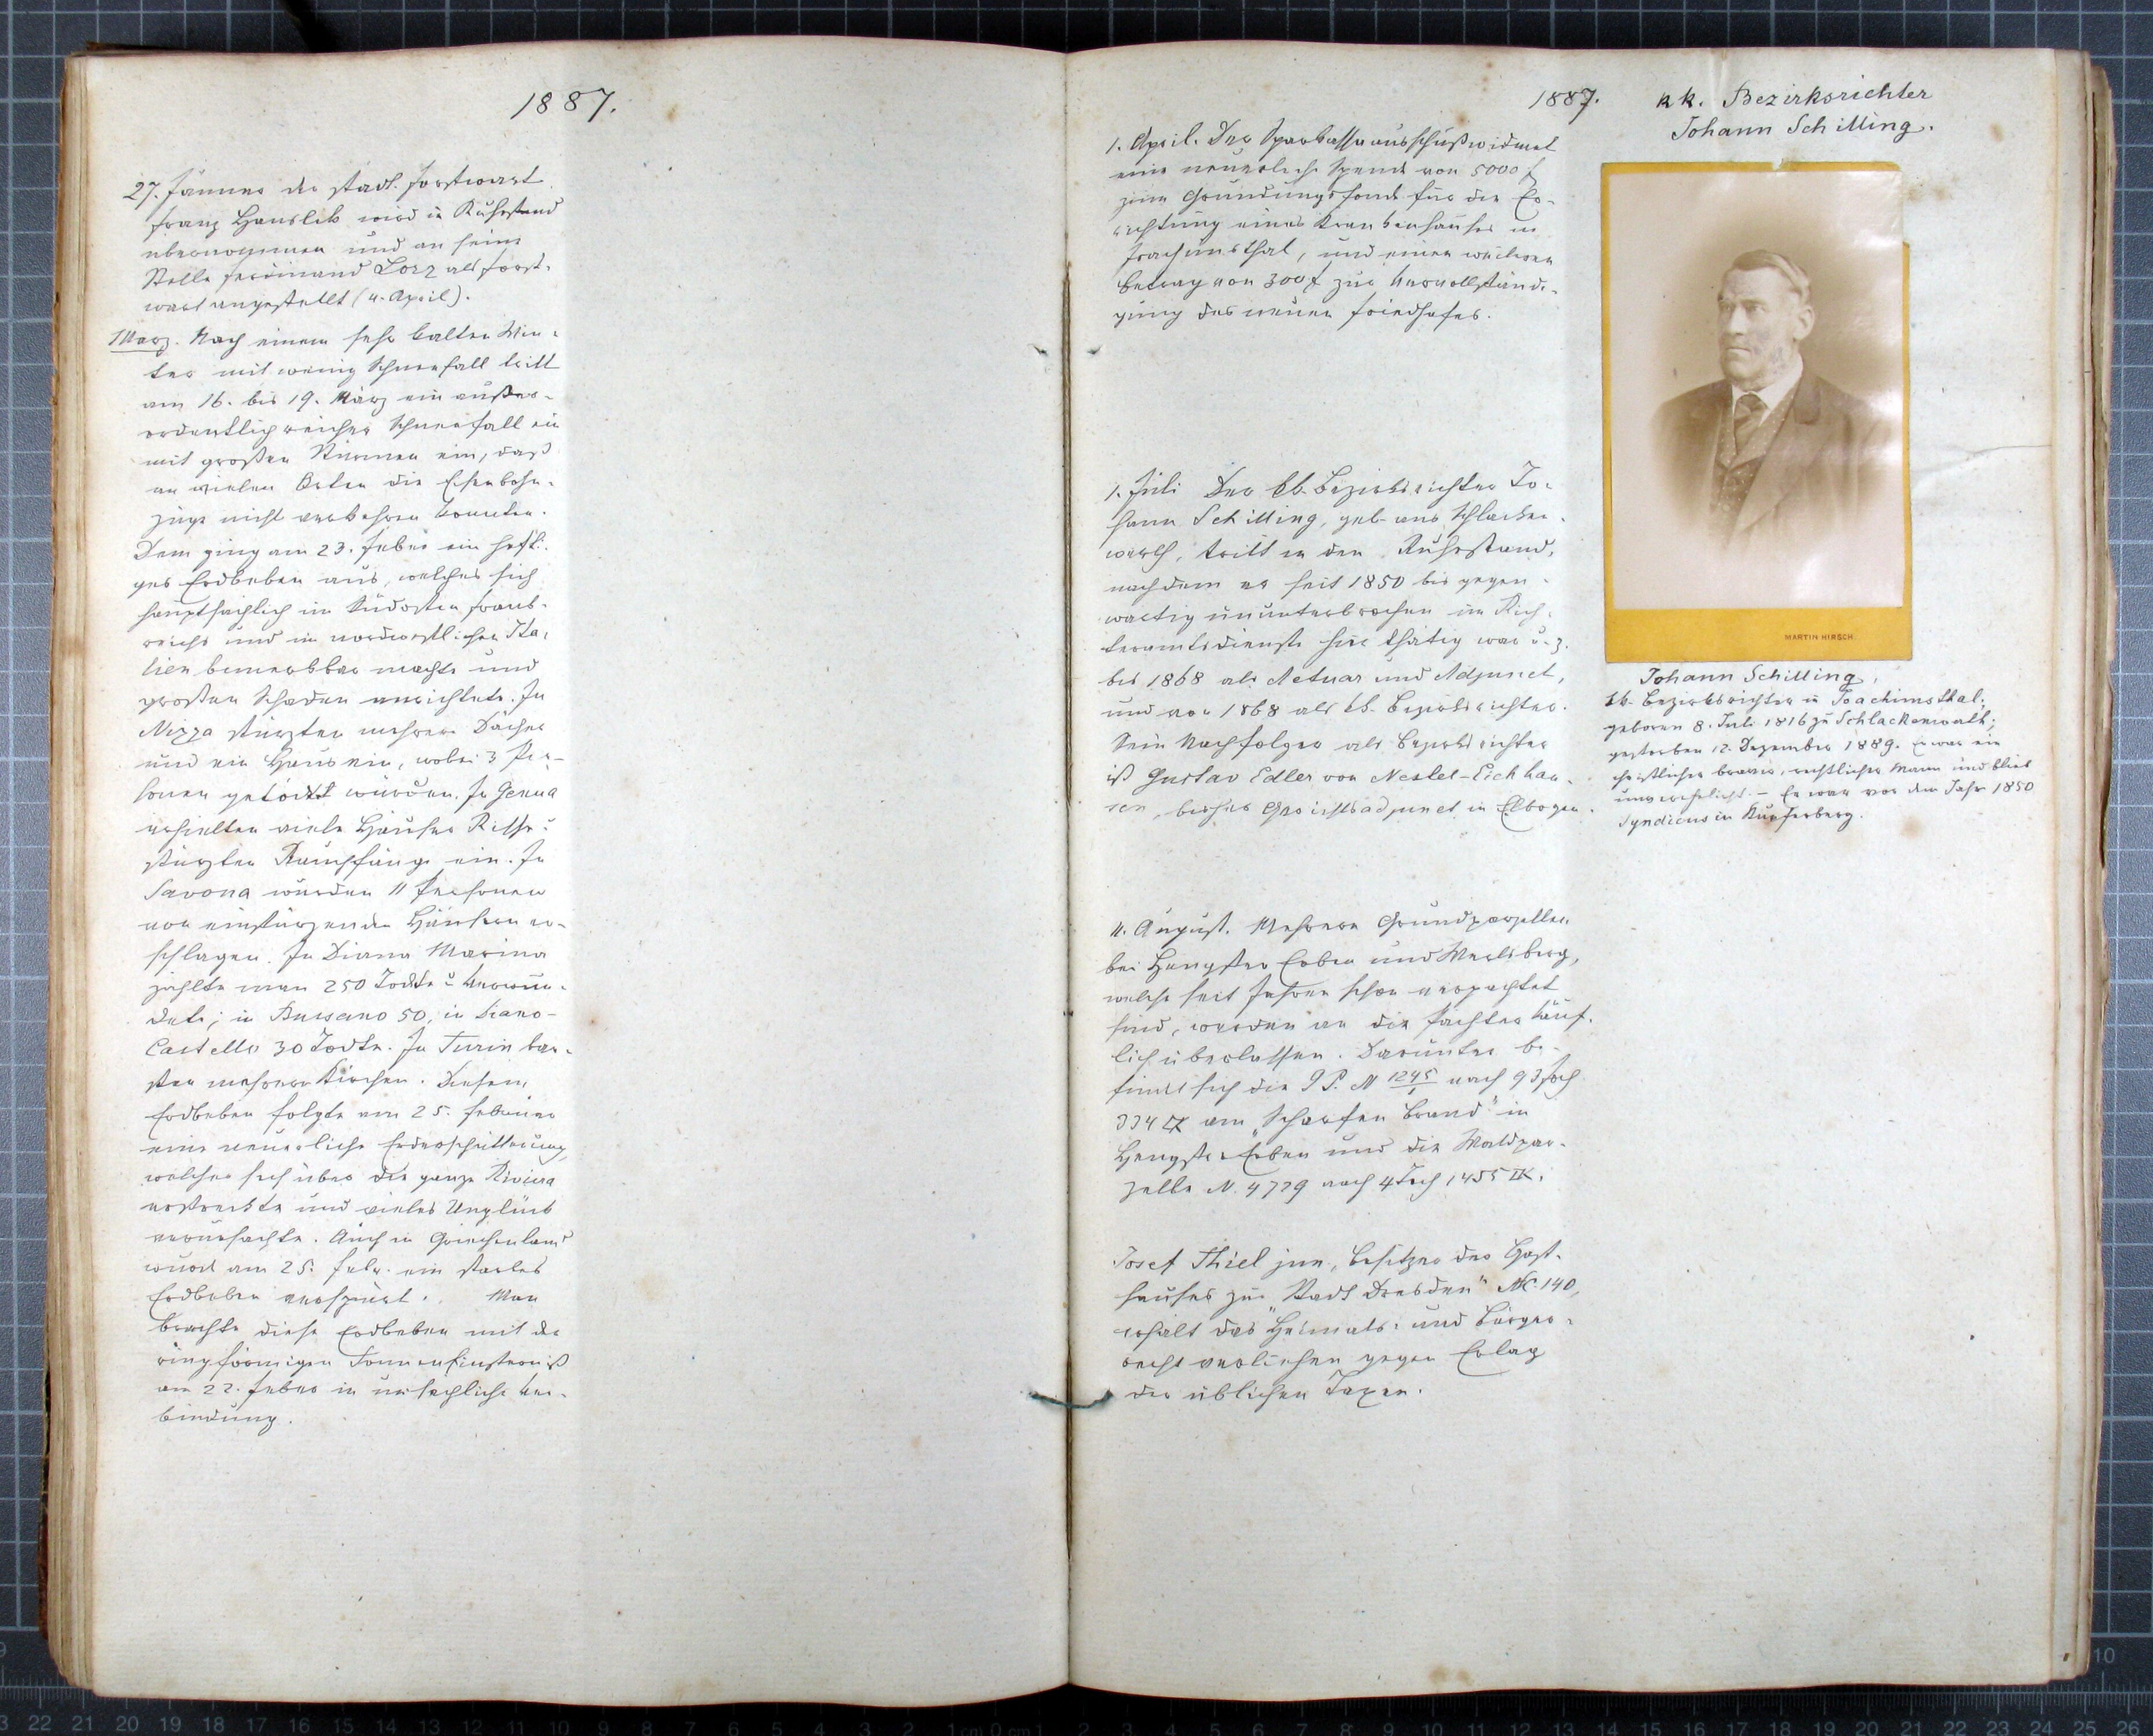 1887.
27. Jänner der städt. Forstwart
Franz Hanslik wird in Ruhestand
übernommen und an seine
Stelle Ferdinand Lorz als Forst-
wart angestellt (4. April).
März. Nach einem sehr kalten Win-
ter mit wenig Schneefall tritt
am 16. bis 19. März ein außer-
ordentlich reicher Schneefall ein
mit großen Stürmen ein, daß
an vielen Orten die Eisenbahn-
züge nicht verkehren konnten.
Dem ging am 23. Feber ein hefti-
ges Erdbeben aus, welches sich
hauptsächlich im Südosten Frank-
reichs und im nordwestlichen Ita-
lien bemerkbar machte und
großen Schaden anrichtete. In
Nizza stürzten mehrere Dächer
und ein Haus ein, wobei 3 Per-
sonen getödtet wurden. In Genua
erhielten viele Häuser Risse u
stürzten Rauchfänge ein. In
Savona wurden 11 Personen
von einstürzenden Häusern er-
schlagen. In Diana Marina
zählte man 250 Todte u Verwun-
dete; in Bussano 50, in Diano-
Castello 30 Todte. In Turin bar-
sten mehrere Kirchen. Diesem
Erdbeben folgte am 25. Februar
eine neuerliche Erderschütterung,
welche sich über die ganze Riviera
erstreckte und vieles Unglück
verursachte. Auch in Griechenland
wurd am 25. Febr. ein starkes
Erdbeben verspürt. Man
brachte diese Erdbeben mit der
ringförmigen Sonnenfinsterniß
am 22. Feber in ursachliche Ver-
bindung.
1887.
1. April. Der Sparkasseausschuß widmet
eine neuerliche Spende von 5000 f
zum Gründungsfonde für die Er-
richtung eines Krankenhauses in
Joachimsthal, und einen weiteren
Betrag von 300 f zur Vervollständi-
gung des neuen Friedhofes.
1. Juli Der kk. Bezirksrichter Jo-
hann Schilling, geb. aus Schlacken-
werth, tritt in den Ruhestand,
nachdem er seit 1850 bis gegen-
wärtig ununterbrochen im Rich-
teramtsdienste hier thätig war u. z.
bis 1868 als Actuar und Adjunct,
und von 1868 als kk. Bezirksrichter.
Sein Nachfolger als Bezirksrichter
ist Gustav Edler von Neslel-Eichhau-
sen, bisher Gerichtsadjunct in Elbogen.
11. August. Mehrere Grundparzellen
bei Hengster Erben und Werlsberg,
welche seit Jahren schon verpachtet
sind, werden an die Pächter käuf-
lich überlassen. Darunter be-
findet sich die G P. N 1245/1 nach 93 Joch
334 □K am „Scharfen Brand" in
Hengster Erben und die Waldpar-
zelle N. 4779 nach 4 Joch 1455 □K.
Josef Thiel jun., Besitzer des Gast-
hauses zur „Stadt Dresden" NC. 140,
erhält das Heimats- und Bürger-
recht verliehen gegen Erlag
der üblichen Taxen.
kk. Bezirksrichter
Johann Schilling.
MARTIN HIRSCH
Johann Schilling,
kk. Bezirksrichter in Joachimsthal,
geboren 8. Juli 1816 zu Schlackenwalt;
gestorben 12. Dezember 1889. Er war ein
christlicher braver, rechtlicher Mann und blieb
unverehelicht. – Er war vor dem Jahr 1850
Syndicus in Kupferberg.